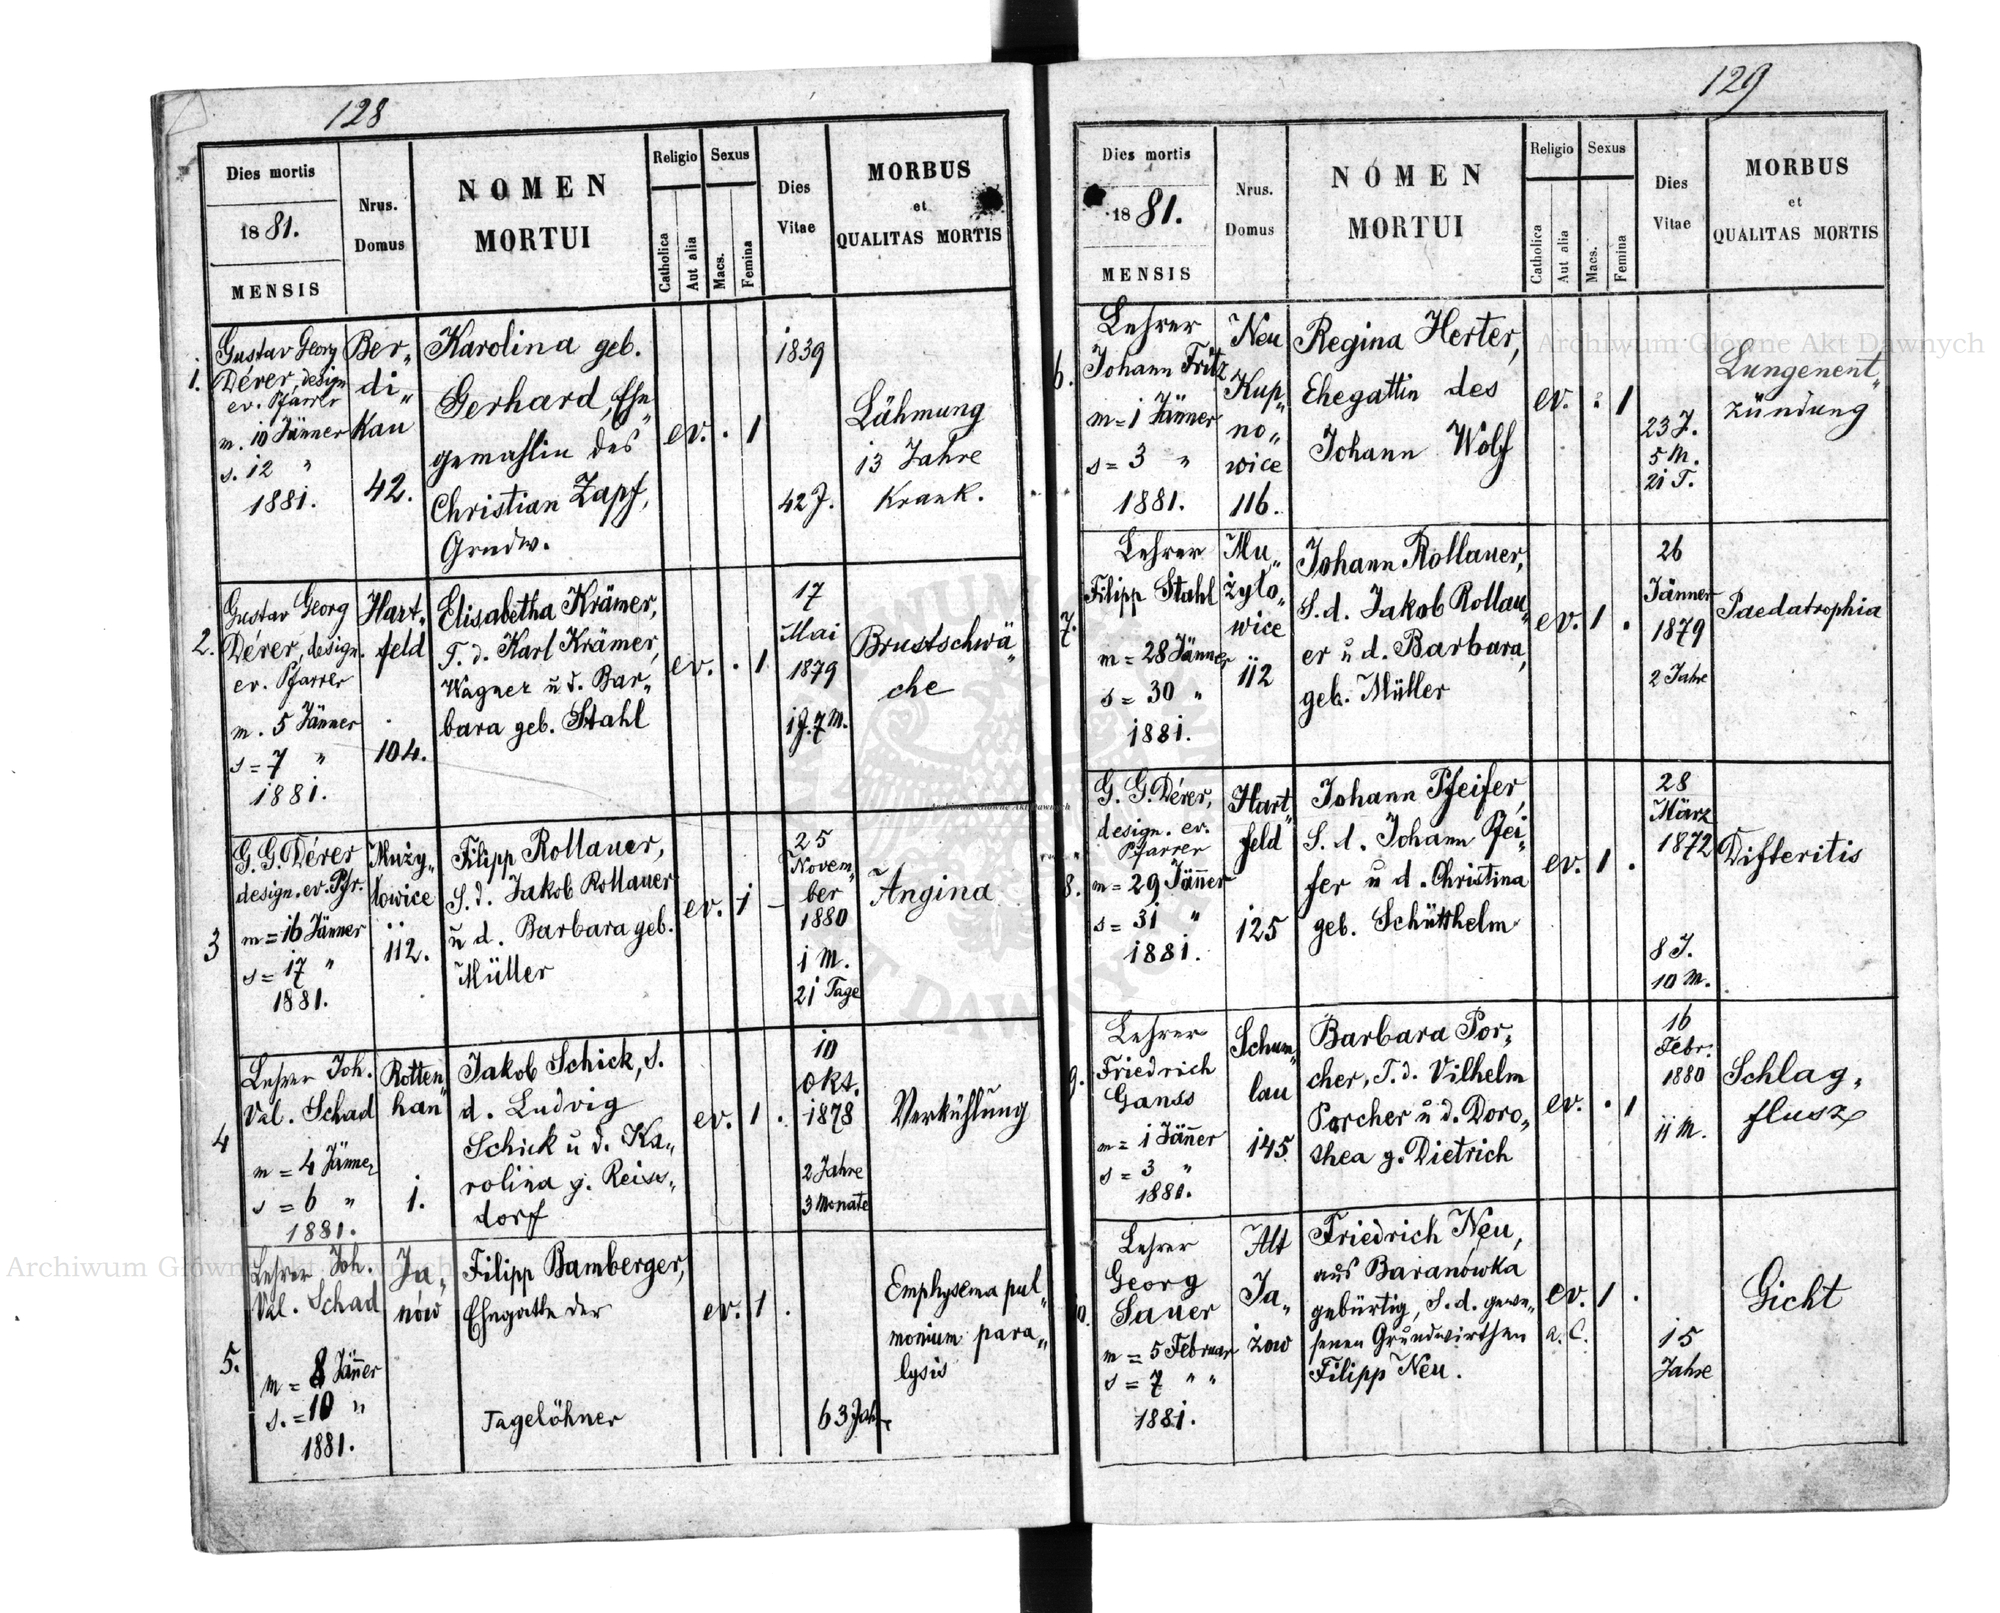 128
Dies mortis
1881.
MENSIS
Nrus.
Domus
NOMEN
MORTUI
Religio
Catholica
Aut alia
Sexus
Macs.
Femina
Dies
Vitae
MORBUS
et
QUALITAS MORTIS
1.
Gustav Georg
Dérer, design
ev. Pfarrer
m. 10 Jänner
s. 12 "
1881.
Ber„
di„
kau
42.
Karolina geb.
Gerhard, Ehe„
gemahlin des
Christian Zapf,
Grndw.
ev. . 1
1839
42 J.
Lähmung
13 Jahre
krank.
2.
Gustav Georg
Dérer, design.
ev. Pfarrer
m. 5 Jänner
s = 7 "
1881.
Hart„
feld
104.
Elisabetha Krämer,
T. d. Karl Krämer,
Wagner u d. Bar„
bara geb. Stahl
ev. . 1
17
Mai
1879
1 J. 7 M.
Brustschwä„
che
3
G. G. Dérer
design. ev. Pfr.
m = 16 Jänner
s = 17 "
1881.
Muży„
łowice
112.
Filipp Rollauer,
S. d. Jakob Rollauer
u d. Barbara geb.
Müller
ev. 1 –
25
Novem„
ber
1880
1 M.
21 Tage
Angina
4
Lehrer Joh.
Val. Schad
m = 4 Jänner
s = 6 "
1881.
Rotten„
han
1.
Jakob Schick, S.
d. Ludvig
Schick u d. Ka„
rolina g. Reiss„
dorf
ev. 1 .
10
Okt.
1878
2 Jahre
3 Monate
Verkühlung
5.
Lehrer Joh.
Val. Schad
m = 8 Jänner
s. = 10 "
1881.
Ja„
nów
Filipp Bamberger,
Ehegatte der
Tagelöhner
ev. 1 .
63 Jahre
Emphysema pul„
monium para„
lysis
129
Dies mortis
1881.
MENSIS
Nrus.
Domus
NOMEN
MORTUI
Religio
Catholica
Aut alia
Sexus
Macs.
Femina
Dies
Vitae
MORBUS
et
QUALITAS MORTIS
6.
Lehrer
Johann Fritz
m = 1 Jänner
s = 3 "
1881.
Neu
Kup„
no„
wice
116.
Regina Herter,
Ehegattin des
Johann Wolf
ev. . 1
23 J.
5 M.
21 T.
Lungenent„
zündung
7.
Lehrer
Filipp Stahl
m = 28 Jänner
s = 30 "
1881.
Mu„
żyło„
wice
112
Johann Rollauer,
S. d. Jakob Rollau„
er u d. Barbara,
geb. Müller
ev. 1 .
26
Jänner
1879
2 Jahre
Paedatrophia
8.
G. G. Dérer,
design. ev.
Pfarrer
m = 29 Jänner
s = 31 "
1881.
Hart„
feld
125
Johann Pfeifer,
S. d. Johann Pfei„
fer u d. Christina
geb. Schütthelm
ev. 1 .
28
März
1872
8 J.
10 M.
Difteritis
9.
Lehrer
Friedrich
Ganss
m = 1 Jänner
s = 3 "
1881.
Schum„
lau
145.
Barbara Por„
cher, T. d. Vilhelm
Porcher u d. Doro„
thea g. Dietrich
ev. . 1
16
Febr.
1880
11 M.
Schlag„
flusz
10.
Lehrer
Georg
Sauer
m = 5 Februar
s = 7 " "
1881.
Alt
Ja„
zow
Friedrich Neu,
aus Baranówka
gebürtig, S. d. gewe„
senen Grundwirthen
Filipp Neu.
ev. 1 .
a. C.
15
Jahre
Gicht
Archiwum Główne Akt Dawnych